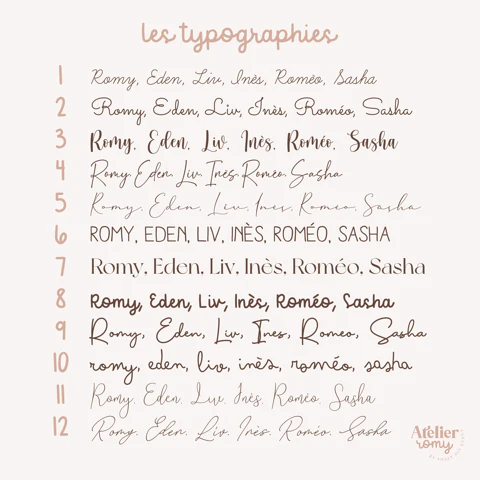 les typographies
1 Romy, Eden, Liv, Inès, Roméo, Sasha
2 Romy, Eden, Liv, Inès, Roméo, Sasha
3 Romy, Eden, Liv, Inès, Roméo, Sasha
4 Romy, Eden, Liv, Inès, Roméo, Sasha
5 Romy, Eden, Liv, Ines, Romeo, Sasha
6 ROMY, EDEN, LIV, INÈS, ROMÉO, SASHA
7 Romy, Eden, Liv, Inès, Roméo, Sasha
8 Romy, Eden, Liv, Inès, Roméo, Sasha
9 Romy, Eden, Liv, Ines, Romeo, Sasha
10 romy, eden, liv, inès, roméo, sasha
11 Romy, Eden, Liv, Inès, Roméo, Sasha
12 Romy, Eden, Liv, Inès, Roméo, Sasha
Atelier
romy